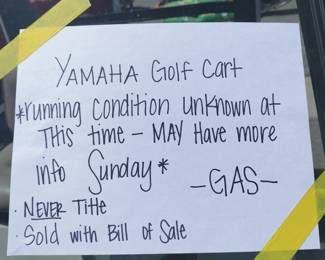 YAMAHA Golf Cart
*running condition unknown at
This time - MAY Have more
info Sunday*
-GAS-
· NEVER Title
· Sold with Bill of Sale